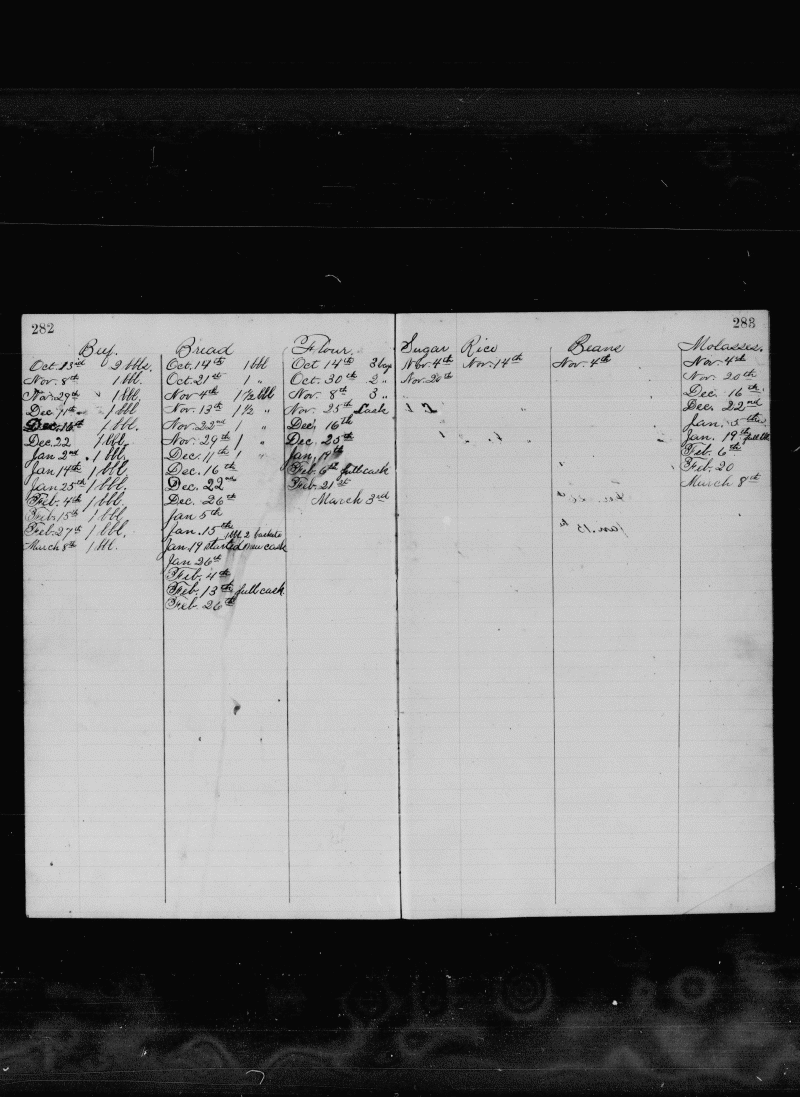 282
Beef.
Oct. 13rd 2 bbls.
Nov. 8th 1 bbl.
Nov. 29th 1 bbl.
Dec. 7th 1 bbl
Dec. 15th 1 bbl.
Dec. 22 1 bbl.
Jan 2nd 1 bbl.
Jan 14th 1 bbl.
Jan 25th 1 bbl.
Feb. 4th 1 bbl.
Feb. 15th 1 bbl
Feb. 27th 1 bbl.
March 8th 1 bbl.
Bread
Oct. 14th 1 bbl
Oct. 21st 1 "
Nov 4th 1 1/2 bbl
Nov. 13th 1 1/2 "
Nov. 23nd 1 "
Nov. 29th 1 "
Dec. 11th 1 "
Dec. 16th
Dec. 22nd
Dec. 26th
Jan 5th
Jan. 15th 1 bbl 2 buckets
Jan. 19 started new cask
Jan 26th
Feb. 4th
Feb. 13th full cask
Feb. 26th
Flour.
Oct 14th 3 bags
Oct. 30th 2 "
Nov. 8th 3 "
Nov. 25th Cask
Dec. 16th
Dec. 25th
Jan. 14th
Feb. 6th full cask
Feb. 21st
March 3rd
283
Sugar
Nov. 4th
Nov. 20th
Rice
Nov. 14th
Beans
Nov. 4th
Molasses.
Nov. 4th
Nov. 20th
Dec. 16th.
Dec. 22nd
Jan. 5th
Jan. 19th full bbl
Feb. 6th
Feb. 20
March 8th